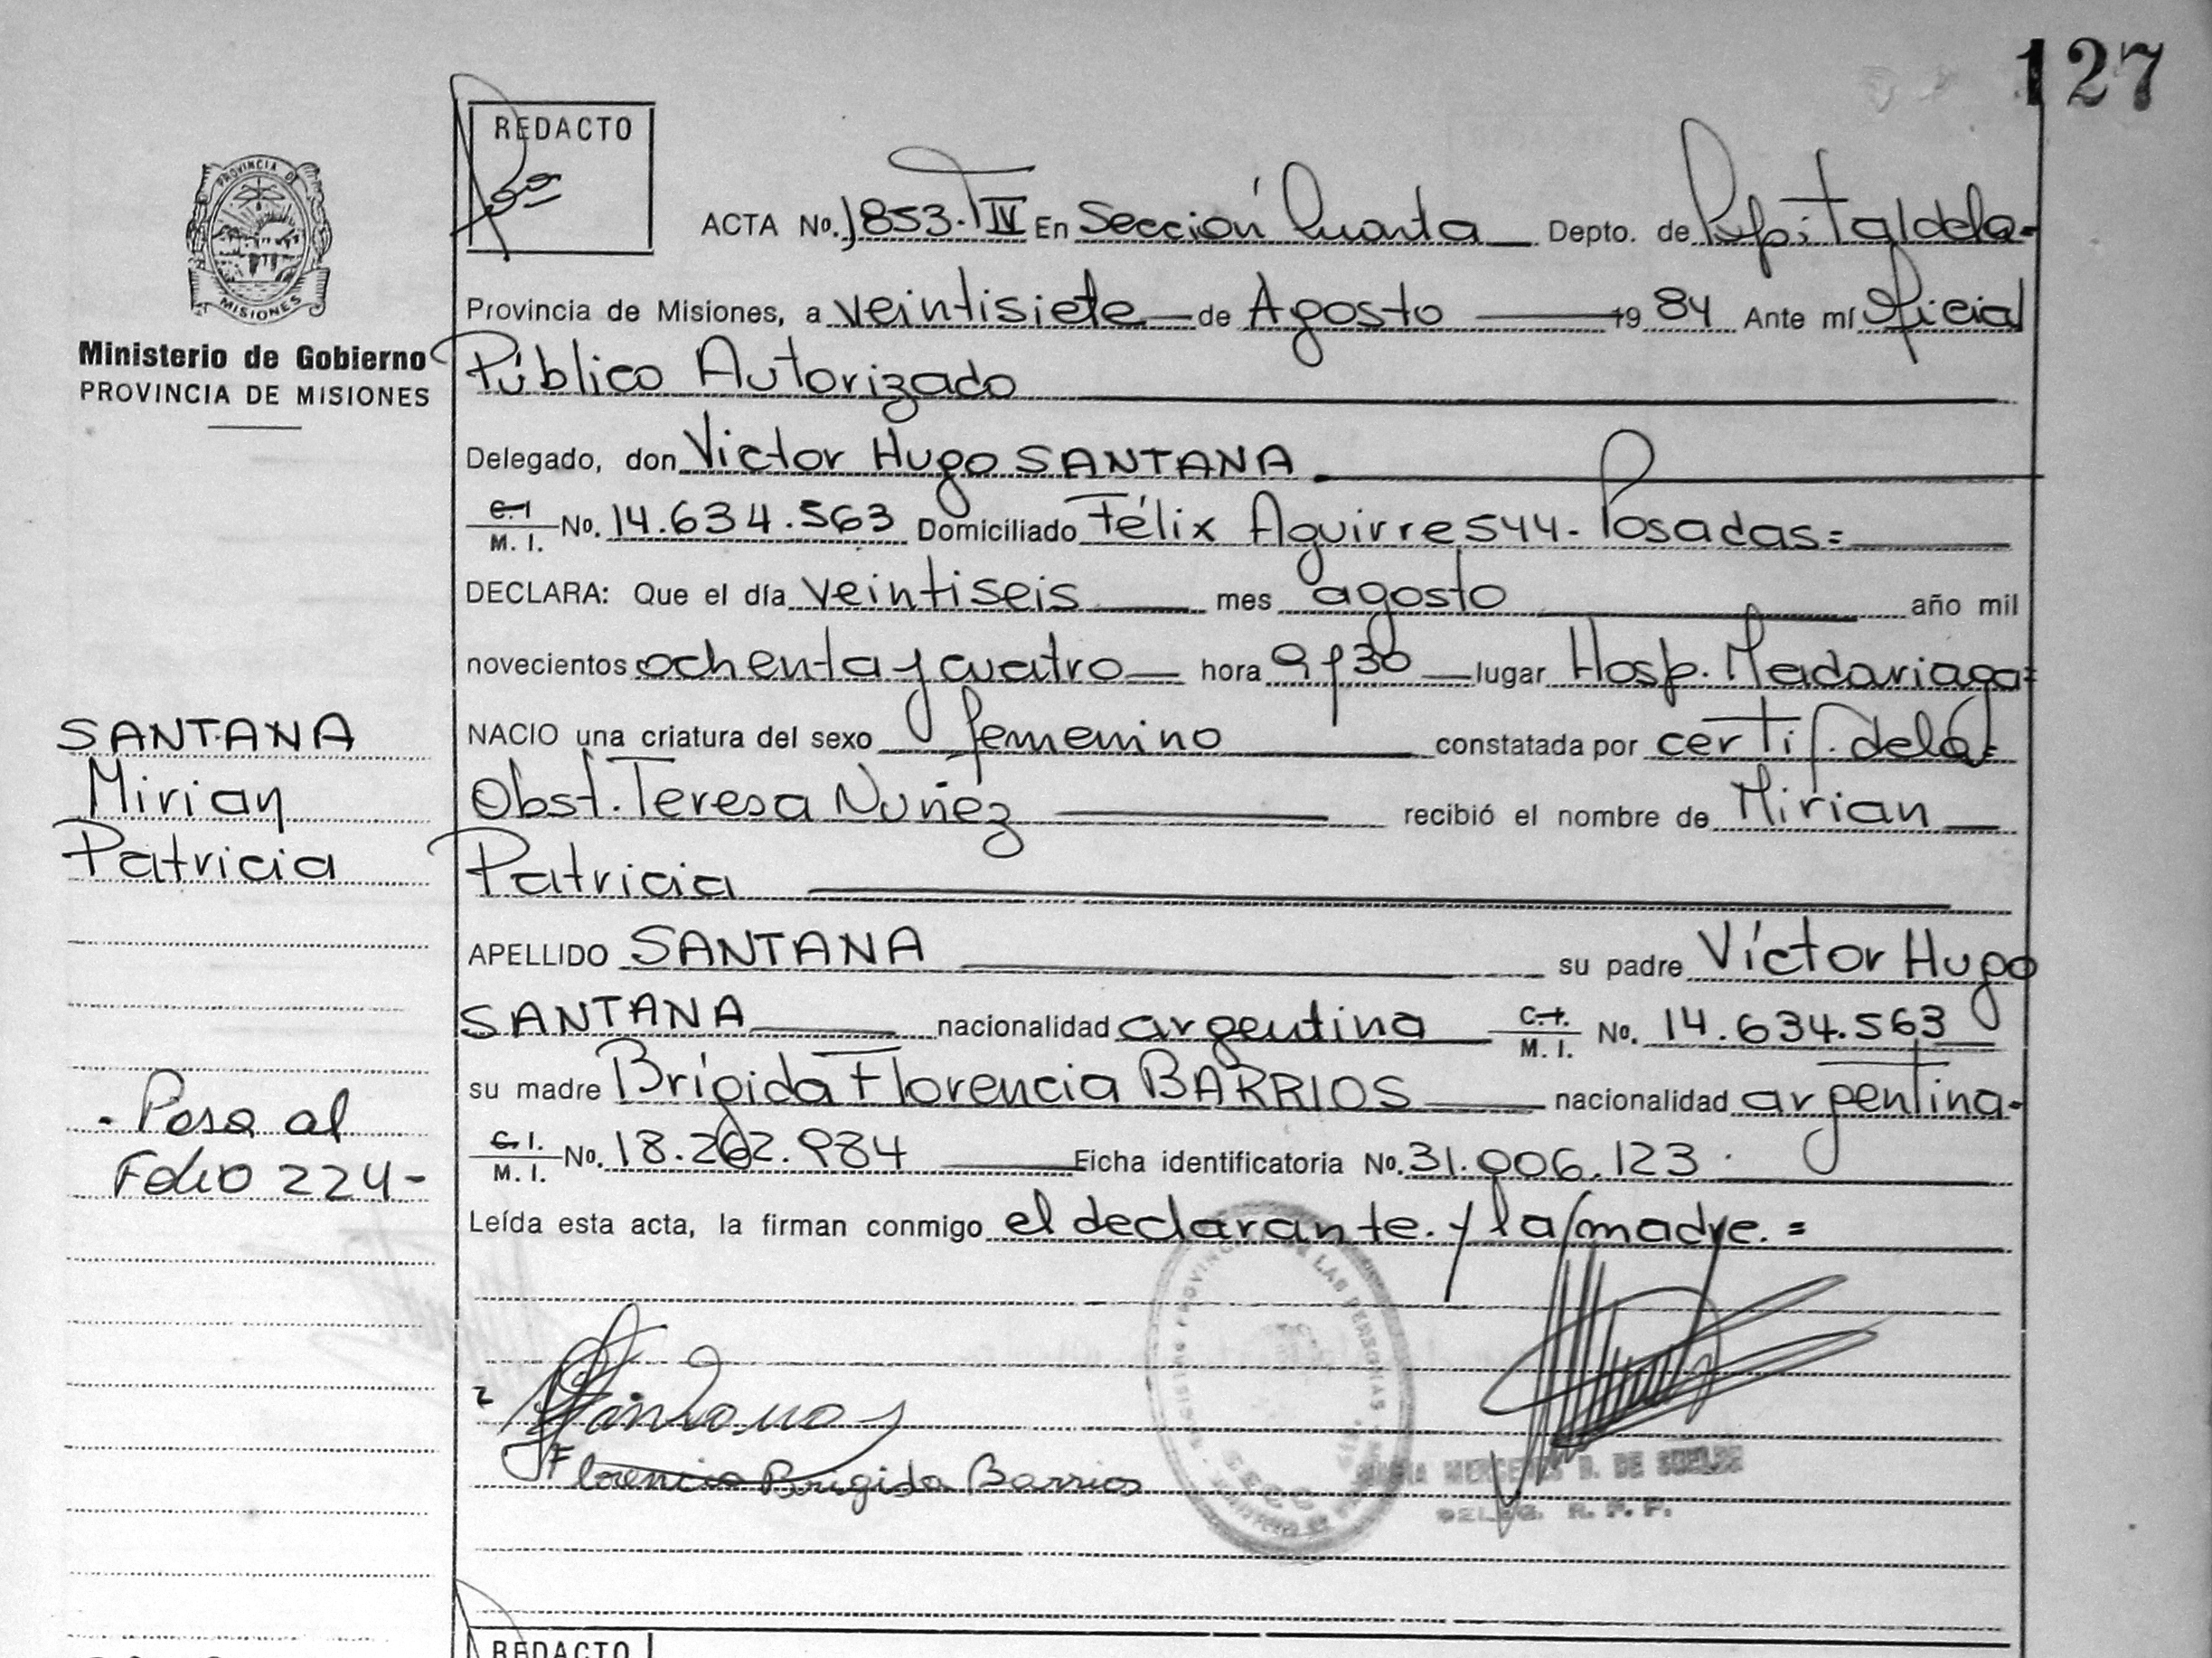 127
REDACTO
ACTA No. 1853. T IV En Sección Cuarta Depto. de Capital de la=
PROVINCIA DE
MISIONES
Ministerio de Gobierno
PROVINCIA DE MISIONES
Provincia de Misiones, a veintisiete de Agosto 1984 Ante mí Oficial
Público Autorizado
Delegado, don Victor Hugo SANTANA
C.I
M. I. No. 14.634.563 Domiciliado Félix Aguirre 544- Posadas=
DECLARA: Que el día veintiseis mes agosto año mil
novecientos ochenta y cuatro hora 9 y 30 lugar Hosp. Madariaga=
SANTANA
Mirian
Patricia
NACIO una criatura del sexo femenino constatada por certif. de la=
Obst. Teresa Nuñez recibió el nombre de Mirian
Patricia
APELLIDO SANTANA su padre Víctor Hugo
SANTANA nacionalidad argentina C.I. M. I. No. 14.634.563
su madre Brígida Florencia BARRIOS nacionalidad argentina-
- Pasa al
Folio 224-
C.I. M. I. No. 18.262.984 Ficha identificatoria No. 31.006.123.
Leída esta acta, la firman conmigo el declarante. y la madre.=
Florencia Brigida Barrios
DE LAS PERSONAS
MERCEDES
DELEG. R. P. P.
REDACTO